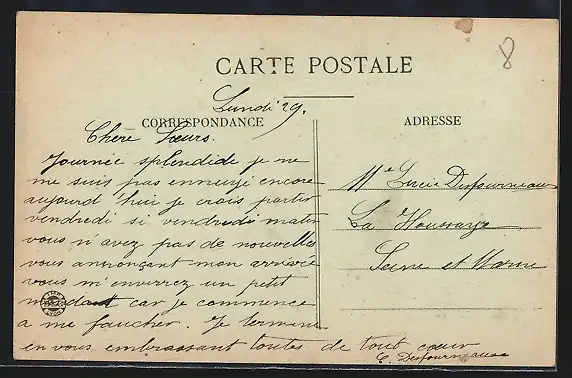 8
CARTE POSTALE
CORRESPONDANCE
ADRESSE
Lundi 29.
Chère Sœurs.
Journée splendide je ne
me suis pas ennuyé encore
aujourd'hui je crois partir
vendredi si vendredi matin
vous n'avez pas de nouvelles
vous annonçant mon arrivée
vous m'enverrez un petit
mandat car je commence
a me faucher. Je termine
en vous embrassant toutes de tout cœur
E. Dufourneaux
Mlle Lucie Dufourneaux
La Houssaye
Seine et Marne